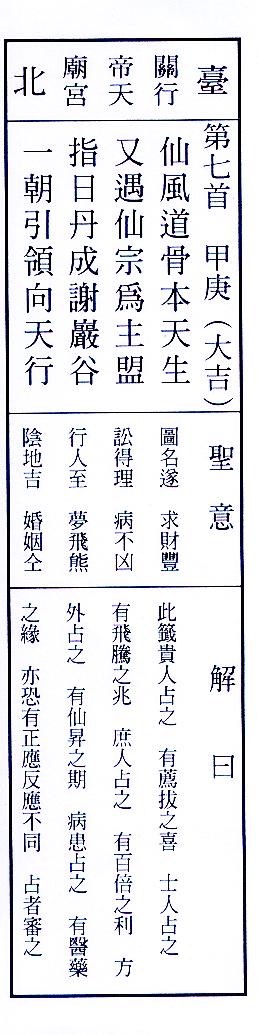 臺
關行
帝天
廟宮
北
第七首 甲庚（大吉）
仙風道骨本天生
又遇仙宗為主盟
指日丹成謝巖谷
一朝引領向天行
聖意
圖名遂 求財豐
訟得理 病不凶
行人至 夢飛熊
陰地吉 婚姻仝
解曰
此籤貴人占之 有薦拔之喜 士人占之
有飛騰之兆 庶人占之 有百倍之利 方
外占之 有仙昇之期 病患占之 有醫藥
之緣 亦恐有正應反應不同 占者審之